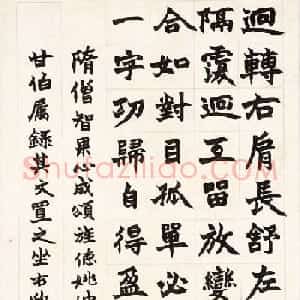 迴轉右肩長舒左
隔覆迴互留放變
合如對目孤單必
一字功歸自得盈
隋僧智果心成頌旌德姚
甘伯屬錄其文置之坐右
Shufaziliao.com